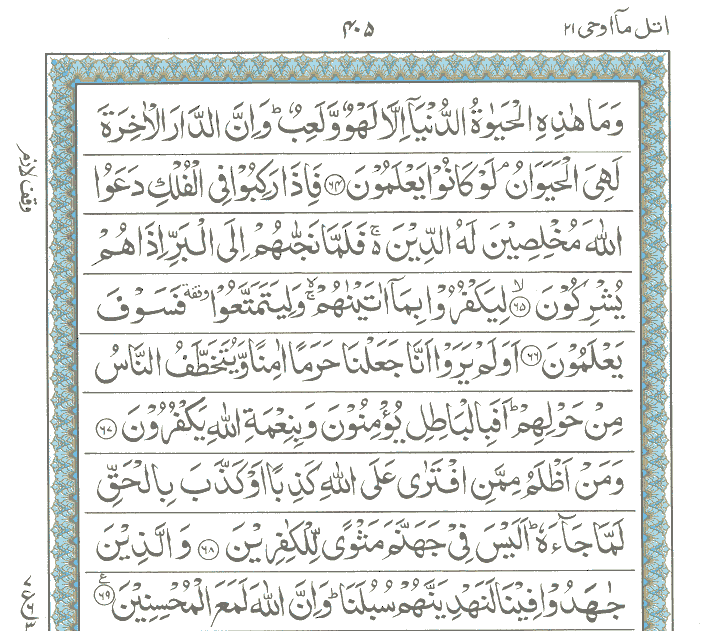 اتل مآ اوحی ۲۱
۴۰۵
وَمَا هٰذِهِ الْحَيٰوةُ الدُّنْيَآ اِلَّا لَهْوٌ وَّلَعِبٌ ؕ وَاِنَّ الدَّارَ الْاٰخِرَةَ
لَهِيَ الْحَيَوَانُ ۘ لَوْ كَانُوْا يَعْلَمُوْنَ ﴿۶۴﴾ فَاِذَا رَكِبُوْا فِي الْفُلْكِ دَعَوُا
اللّٰهَ مُخْلِصِيْنَ لَهُ الدِّيْنَ ۚ فَلَمَّا نَجّٰىهُمْ اِلَى الْبَرِّ اِذَا هُمْ
يُشْرِكُوْنَ ﴿۶۵﴾ ۙ لِيَكْفُرُوْا بِمَآ اٰتَيْنٰهُمْ ۚ ۙ وَلِيَتَمَتَّعُوْا وقفة فَسَوْفَ
يَعْلَمُوْنَ ﴿۶۶﴾ اَوَلَمْ يَرَوْا اَنَّا جَعَلْنَا حَرَمًا اٰمِنًا وَّيُتَخَطَّفُ النَّاسُ
مِنْ حَوْلِهِمْ ؕ اَفَبِالْبَاطِلِ يُؤْمِنُوْنَ وَبِنِعْمَةِ اللّٰهِ يَكْفُرُوْنَ ﴿۶۷﴾
وَمَنْ اَظْلَمُ مِمَّنِ افْتَرٰى عَلَى اللّٰهِ كَذِبًا اَوْ كَذَّبَ بِالْحَقِّ
لَمَّا جَآءَهٗ ؕ اَلَيْسَ فِيْ جَهَنَّمَ مَثْوًى لِّلْكٰفِرِيْنَ ﴿۶۸﴾ وَالَّذِيْنَ
جٰهَدُوْا فِيْنَا لَنَهْدِيَنَّهُمْ سُبُلَنَا ؕ وَاِنَّ اللّٰهَ لَمَعَ الْمُحْسِنِيْنَ ﴿۶۹﴾ ع
وقف لازم